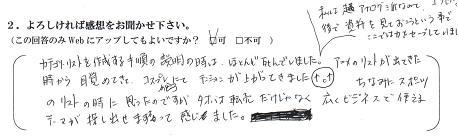 2．よろしければ感想をお聞かせ下さい。
（この回答のみWebにアップしてもよいですか？ ☑可 □不可）
私は超アナログ派なので、
後で資料を見ておこうという事で
ここでは力をセーブしていまし
カテゴリリストを作成する手順の説明の時は、ほとんど死んでいました。
アニメのリストが出てきた
時から目覚めてきて、コスプレにて テンションが上がってきました
ちなみに スポーツ
のリストの時に思ったのですが タオバオは転売だけじゃなく 広くビジネスで使える
テーマが探し出せますねって感じました。